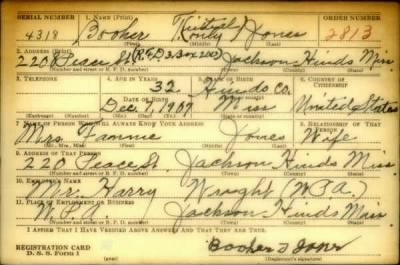 SERIAL NUMBER 1. NAME (Print) ORDER NUMBER
4318 Booker Jones 2813
(First) (Middle) (Last)
2. ADDRESS (Print)
220 Peace St (R.F.D. 3, Box 200) Jackson Hinds Miss
(Number and street or R. F. D. number) (Town) (County) (State)
3. TELEPHONE 4. AGE IN YEARS 5. PLACE OF BIRTH 6. COUNTRY OF CITIZENSHIP
32 Hinds Co.
DATE OF BIRTH
Dec. 1, 1907 Miss United States
(Exchange) (Number) (Mo.) (Day) (Yr.) (State or country)
7. NAME OF PERSON WHO WILL ALWAYS KNOW YOUR ADDRESS 8. RELATIONSHIP OF THAT PERSON
Mrs. Fannie Jones Wife
(Mr., Mrs., Miss) (First) (Middle) (Last)
9. ADDRESS OF THAT PERSON
220 Peace St. Jackson Hinds Miss.
(Number and street or R. F. D. number) (Town) (County) (State)
10. EMPLOYER'S NAME
Mr. Harry Wright (W.P.A.)
11. PLACE OF EMPLOYMENT OR BUSINESS
W.P.A. Jackson Hinds Miss
(Number and street or R. F. D. number) (Town) (County) (State)
I AFFIRM THAT I HAVE VERIFIED ABOVE ANSWERS AND THAT THEY ARE TRUE.
REGISTRATION CARD
D. S. S. Form 1
Booker T Jones
(Registrant's signature)